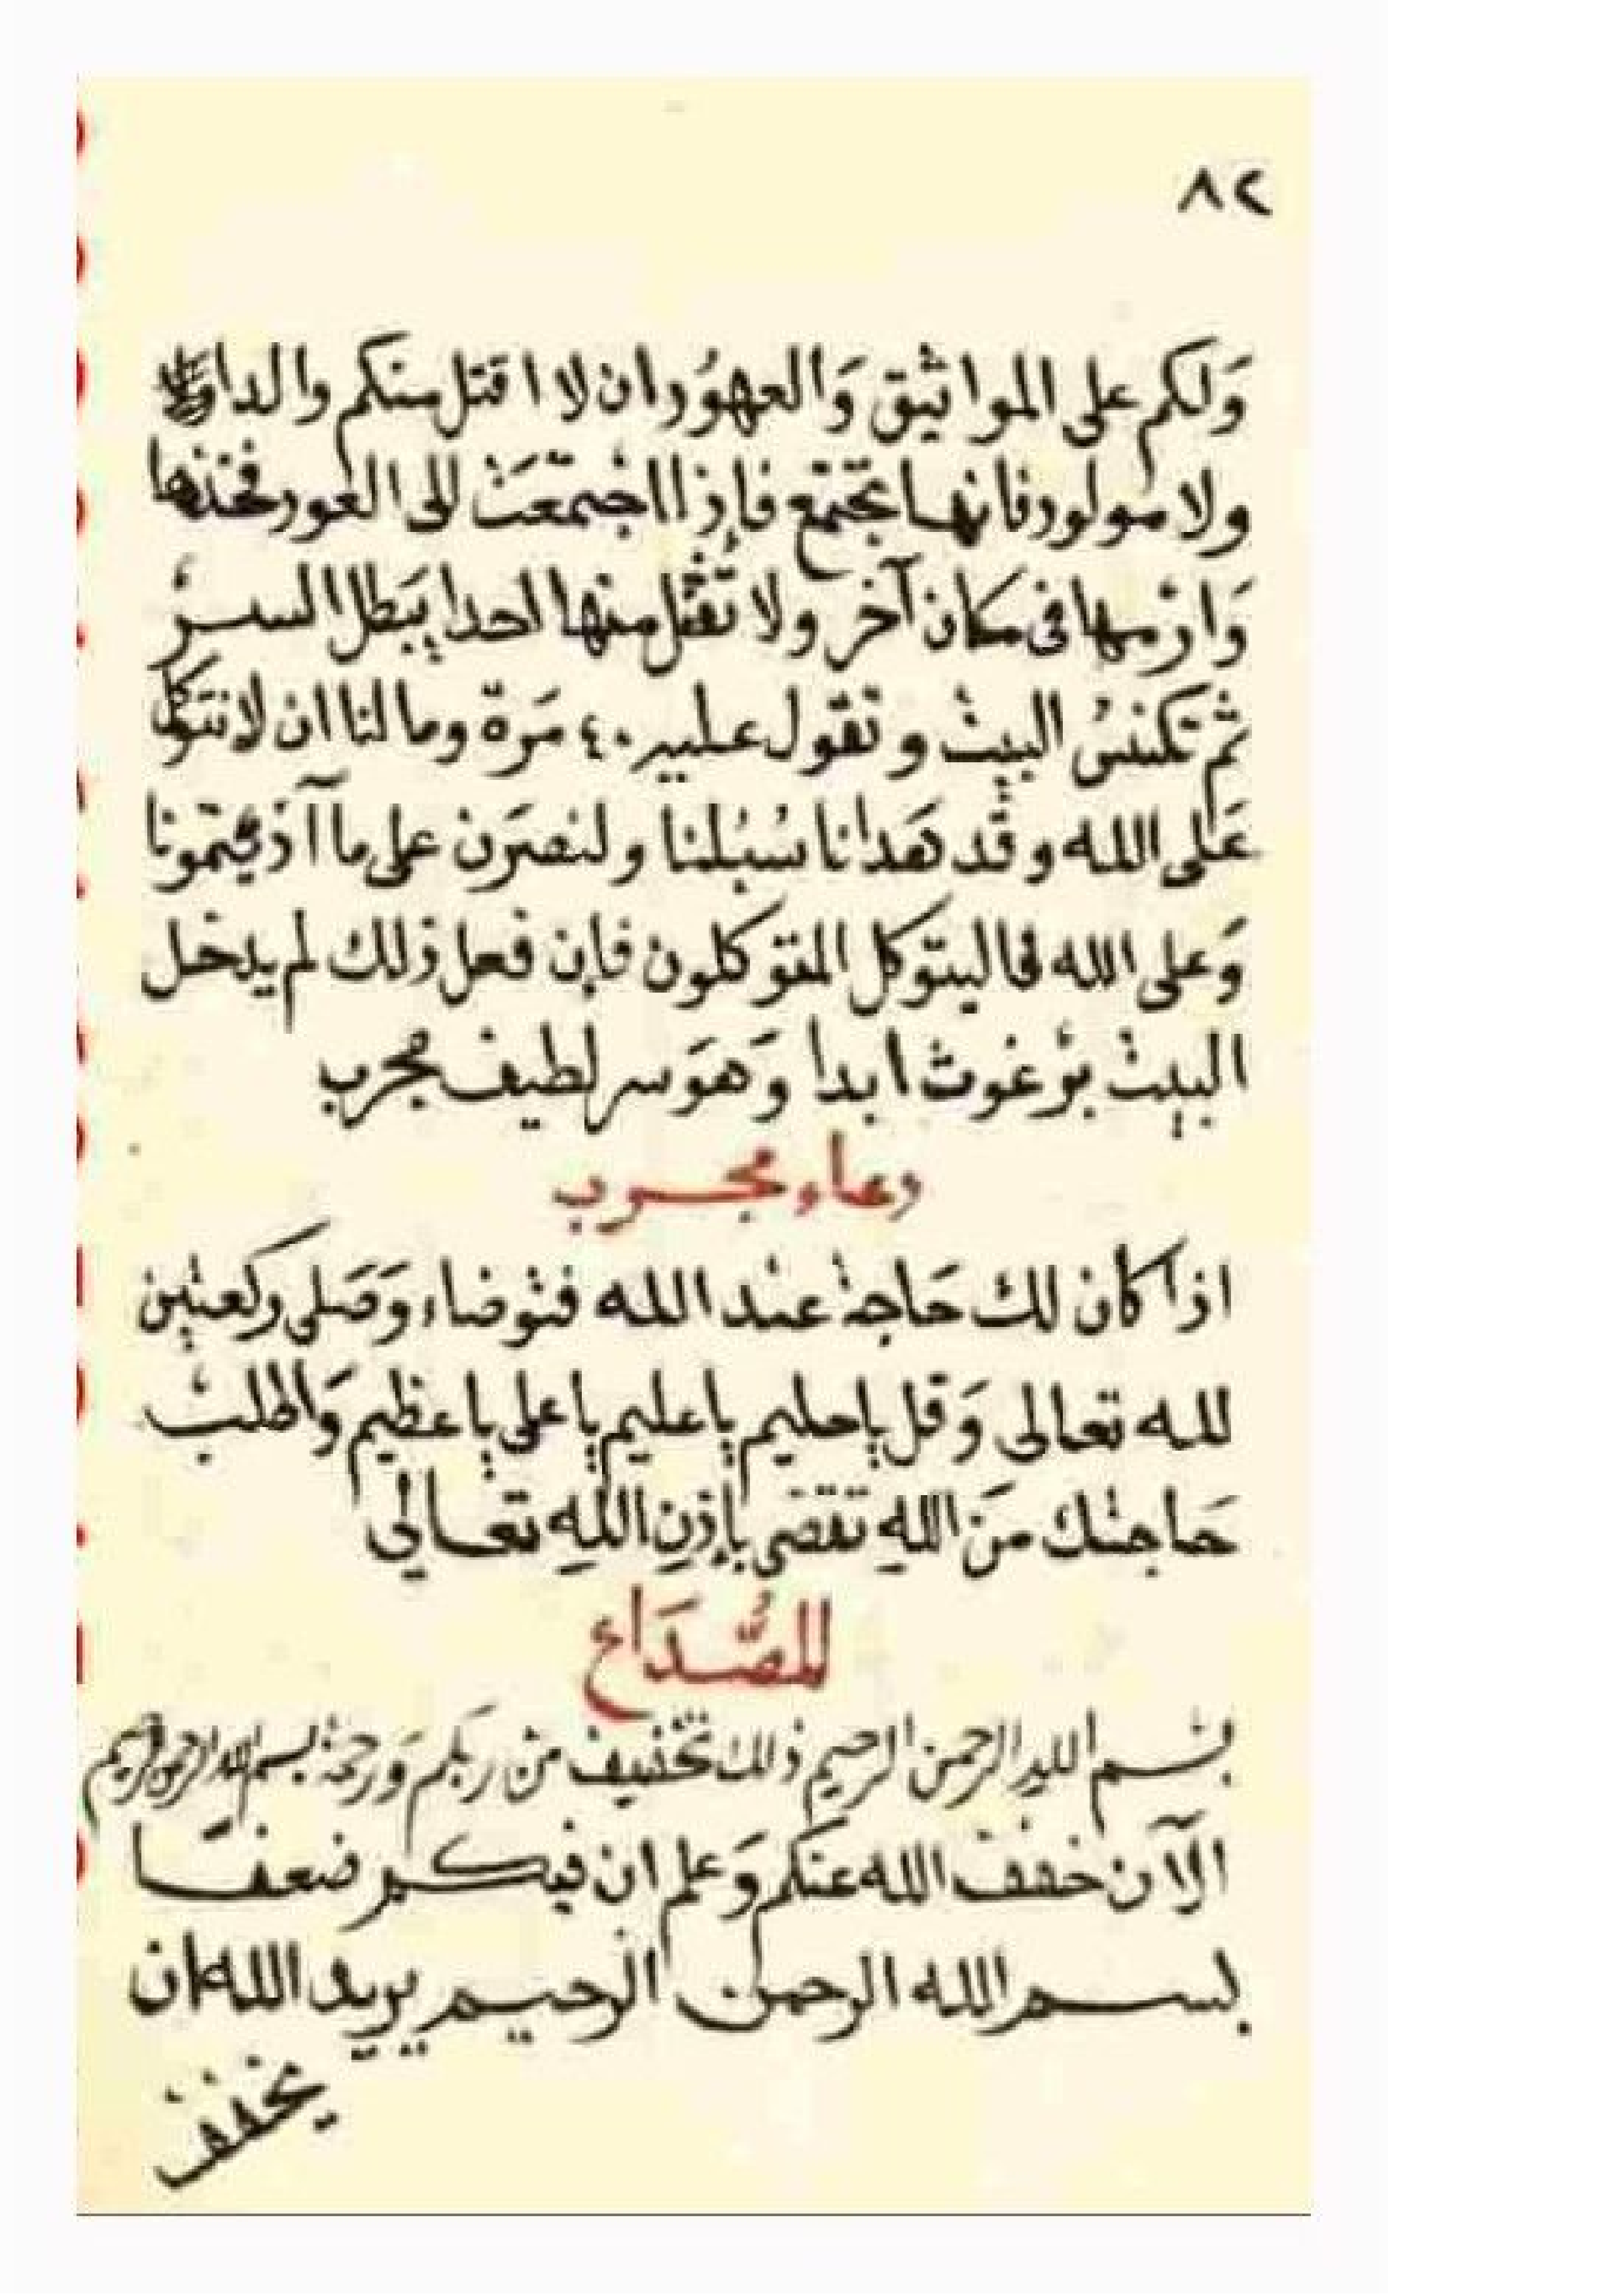 ٨٢
وَلكم على المواثيق وَالعهوُد ان لا اقتل منكم والدا
ولا مولود فانها تجتمع فاِذا اجتمعَت الى العود فخذها
وَارْمِها فى مكان آخر ولا تُقتل منها احدا يبَطل السرُ
ثم تكنسُ البيت وتقول عليه ٤٠ مَرة وما لنا ان لا نتوكل
عَلى الله وقد هَدانا سُبُلنا ولنصبَرن على ما آذيتمونا
وَعلى الله فاليتوكل المتوكلون فاِن فعل ذلك لم يدخل
البيت برْغوث ابدا وَهوَ سر لطيف مجرب
دعاء مجرب
اذا كان لك حَاجة عند الله فتوضاء وَصَلى ركعتين
لله تعالى وَقل يا حليم يا عليم يا على يا عظيم وَاطلبْ
حَاجتك منَ اللهِ تقضى بِاِذنِ اللهِ تعالى
للصُّدَاع
بسْم الله الرحمن الرحيم ذلك تخفيف من رَبكم وَرحمة بسم الله الرحمن الرحيم
الآن خفف الله عنكم وَعلم ان فيكم ضعفا
بسم الله الرحمن الرحيم يريد الله ان
يخفف